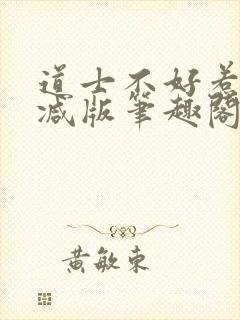 道士不好惹
减版笔趣阁
黄敏东